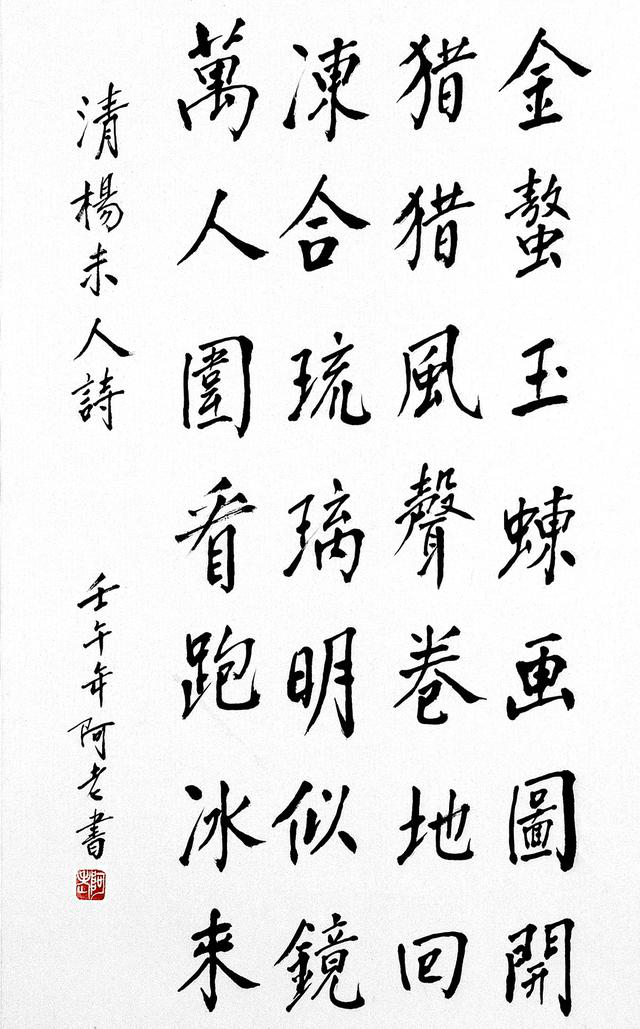 金螯玉蝀画圖開
猎猎風聲卷地回
凍合琉璃明似鏡
萬人圍看跑冰來
清楊未人詩
壬午年阿老書
阿老